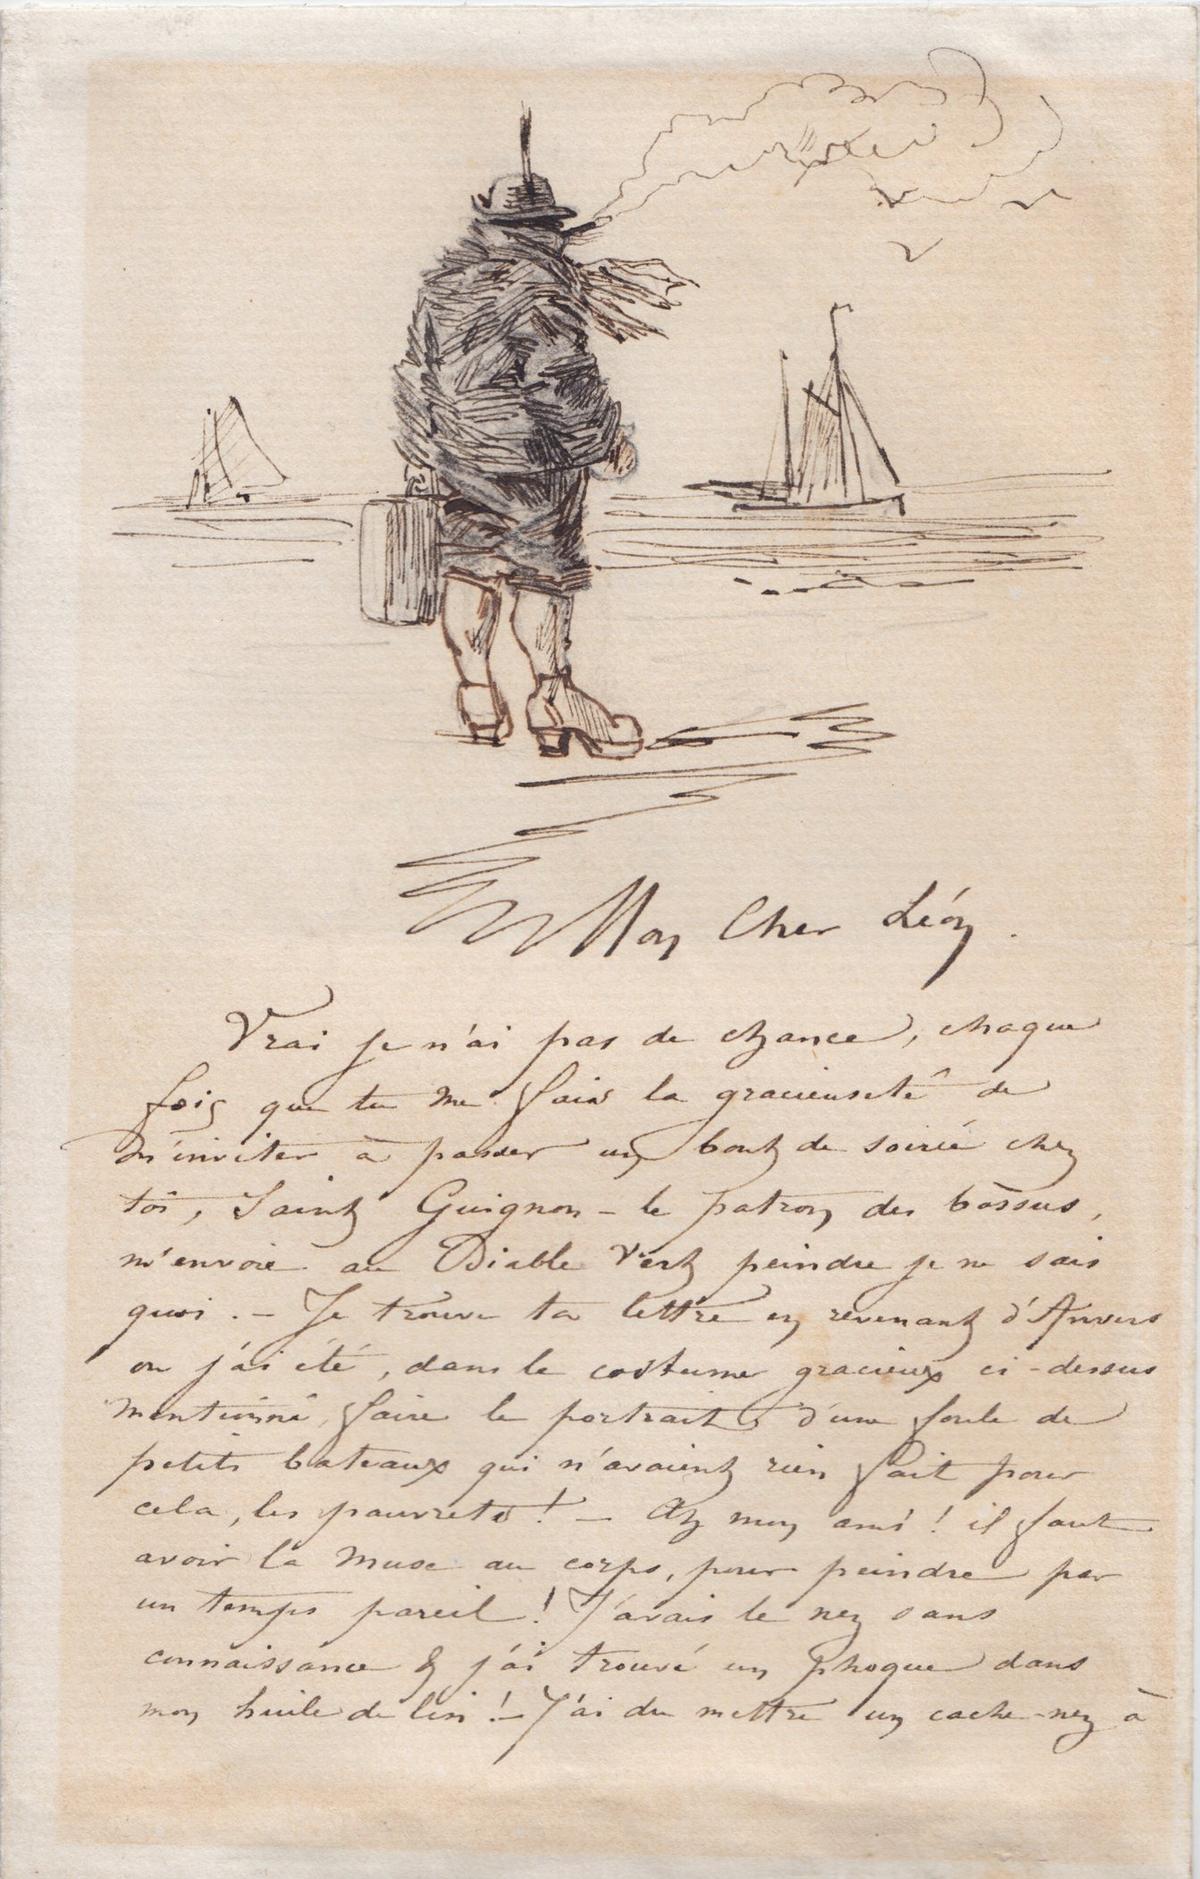 Mon Cher Léon.
Vrai je n'ai pas de chance, chaque
fois que tu me fais la gracieuseté de
m'inviter à passer un bout de soirée chez
toi, Saint Guignon – le patron des bossus,
m'envoie au Diable Vert peindre je ne sais
quoi. – Je trouve ta lettre en revenant d'Anvers
ou j'ai été, dans le costume gracieux ci-dessus
mentionné, faire le portrait d'une foule de
petits bateaux qui n'avaient rien fait pour
cela, les pauvrets ! – Ah mon ami ! il faut
avoir la Muse au corps, pour peindre par
un temps pareil ! J'avais le nez sans
connaissance & j'ai trouvé un phoque dans
mon huile de lin ! – J'ai du mettre un cache-nez à